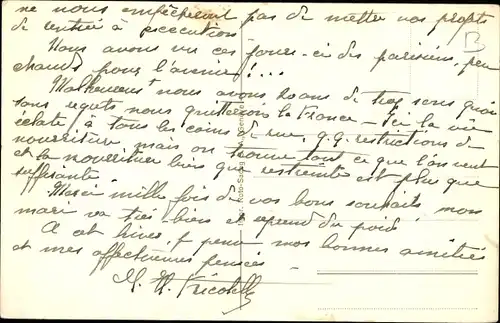 ne nous empêchent pas de mettre nos projets
de rentrée à exécution.
Nous avons vu ces jours-ci des parisiens, peu
chauds pour l'avenir!...
Malheureust nous avons 20 ans de trop sans quoi
sans regrets nous quitterions la France - Ici la vie
éclate à tous les coins de rue, q.q. restrictions de
nourriture, mais on trouve tout ce que l'on veut
et la nourriture bien que restreinte est plus que
suffisante.
Merci mille fois de vos bons souhaits, mon
mari va très bien et reprend du poids.
À cet hiver, je pense, nos bonnes amitiés
et mes affectueuses pensées
M. H.
B